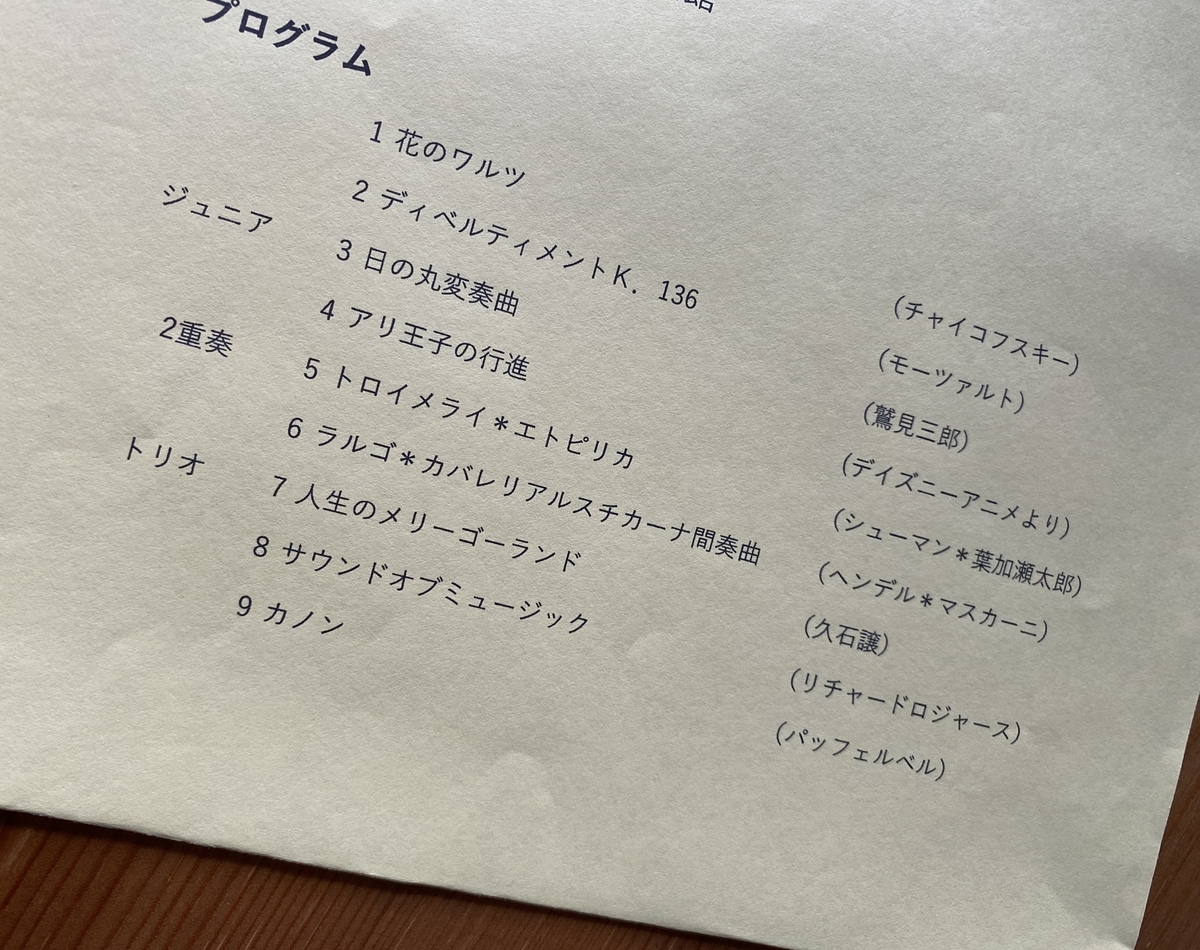 プログラム
1 花のワルツ (チャイコフスキー)
2 ディベルティメントK. 136 (モーツァルト)
ジュニア 3 日の丸変奏曲 (鷲見三郎)
4 アリ王子の行進 (デイズニーアニメより)
2重奏 5 トロイメライ＊エトピリカ (シューマン＊葉加瀬太郎)
6 ラルゴ＊カバレリアルスチカーナ間奏曲 (ヘンデル＊マスカーニ)
トリオ 7 人生のメリーゴーランド (久石譲)
8 サウンドオブミュージック (リチャードロジャース)
9 カノン (パッフェルベル)